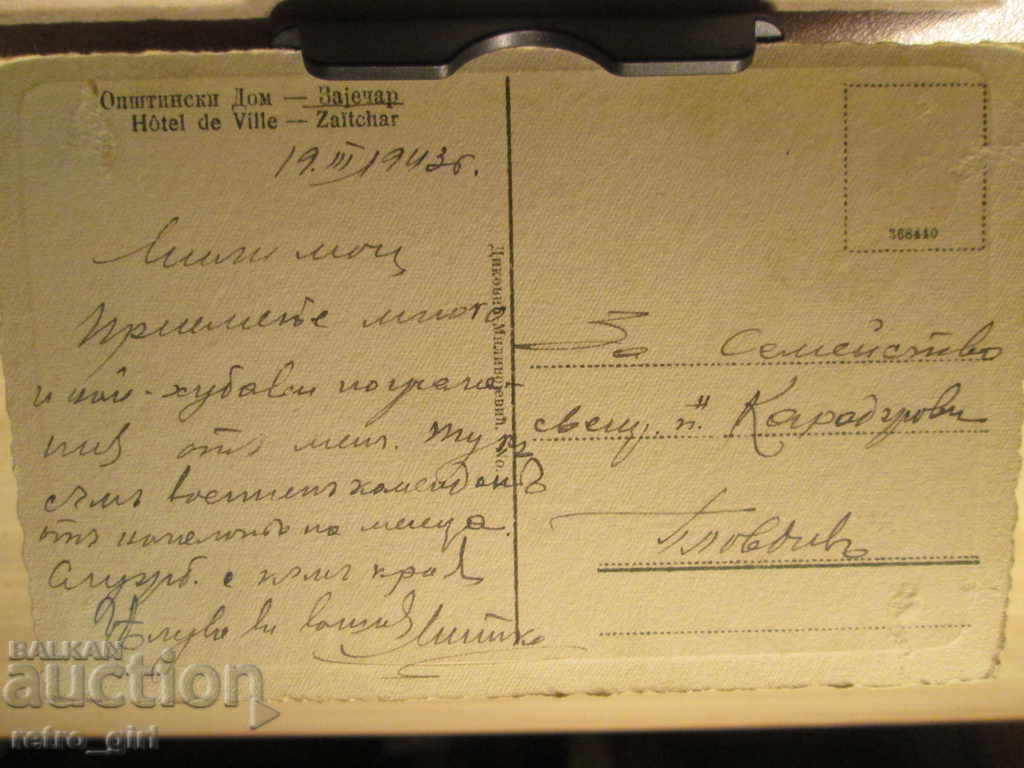 Општински Дом — Зајечар
Hôtel de Ville — Zaïtchar
19.III 1943г.
Мили мои
Приемете много
и най-хубави поздрави
отъ мен. Тук
съмъ военненъ комендантъ
отъ началото на месеца.
Служб. е към края
Целува ви вашия Митко
368440
За Семейство
свещ. п.
Пловдивъ
BALKAN
auction
retro_girl